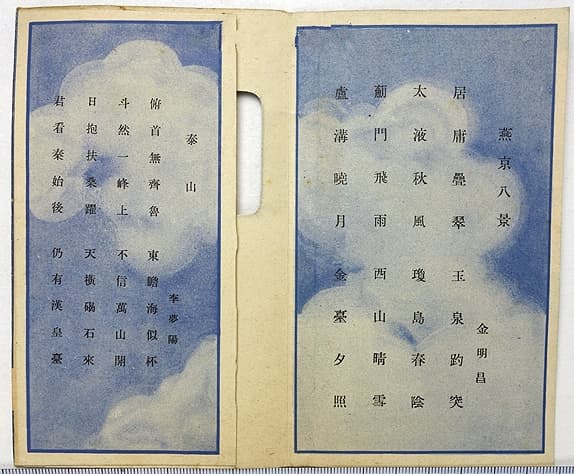 燕京八景
金明昌
居庸疊翠 玉泉趵突
太液秋風 瓊島春陰
薊門飛雨 西山晴雪
盧溝曉月 金臺夕照
泰山
李夢陽
俯首無齊魯 東瞻海似杯
斗然一峰上 不信萬山開
日抱扶桑躍 天橫碣石來
君看秦始後 仍有漢皇臺